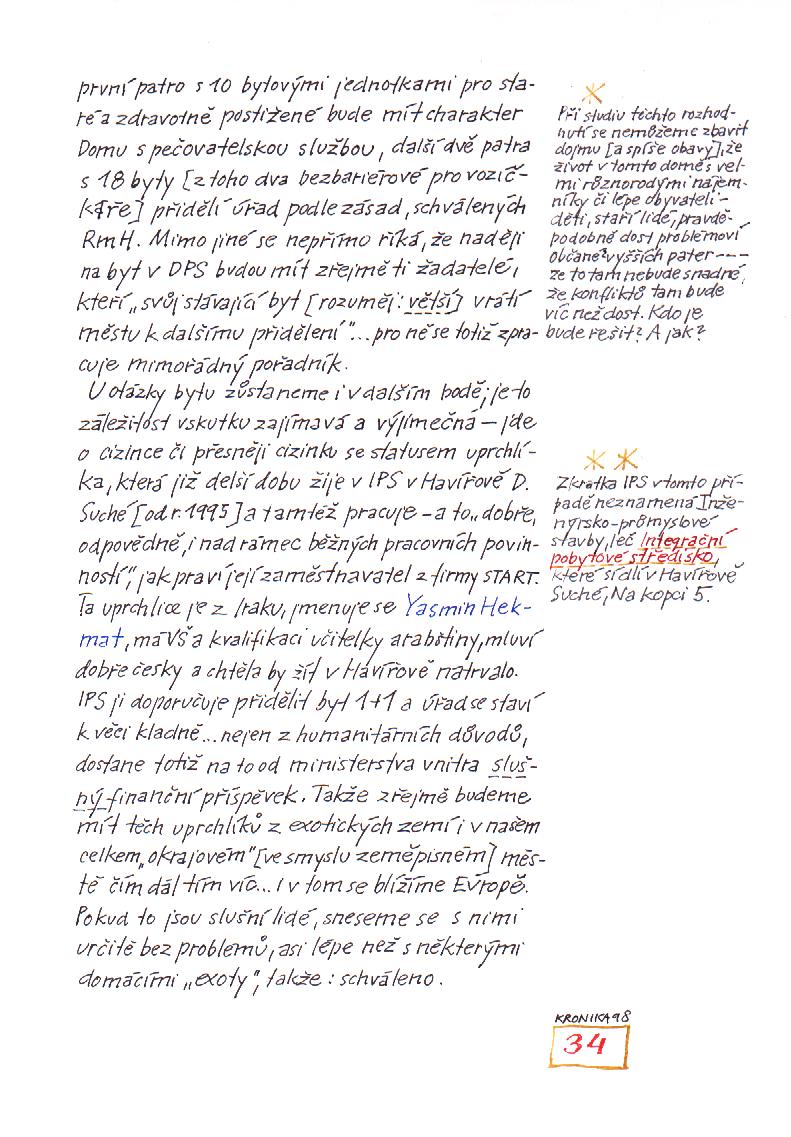 první patro s 10 bytovými jednotkami pro sta-
ré a zdravotně postižené bude mít charakter
Domu s pečovatelskou službou, další dvě patra
s 18 byty [z toho dva bezbariérové pro vozíč-
káře] přidělí úřad podle zásad, schválených
RmH. Mimo jiné se nepřímo říká, že naději
na byt v DPS budou mít zřejmě ti žadatelé,
kteří „svůj stávající byt [rozuměj: větší] vrátí
městu k dalšímu přidělení"... pro ně se totiž zpra-
cuje mimořádný pořadník.
U otázky bytu zůstaneme i v dalším bodě; je to
záležitost vskutku zajímavá a výjimečná – jde
o cizince či přesněji cizinku se statusem uprchlí-
ka, která již delší dobu žije v IPS v Havířově D.
Suché [od r. 1995] a tamtéž pracuje – a to „dobře,
odpovědně, i nad rámec běžných pracovních povin-
ností", jak praví její zaměstnavatel z firmy START.
Ta uprchlice je z Iraku, jmenuje se Yasmin Hek-
mat, má VŠ a kvalifikaci učitelky arabštiny, mluví
dobře česky a chtěla by žít v Havířově natrvalo.
IPS jí doporučuje přidělit byt 1+1 a úřad se staví
k věci kladně... nejen z humanitárních důvodů,
dostane totiž na to od ministerstva vnitra sluš-
ný finanční příspěvek. Takže zřejmě budeme
mít těch uprchlíků z exotických zemí i v našem
celkem „okrajovém" [ve smyslu zeměpisném] měs-
tě čím dál tím víc... I v tom se blížíme Evropě.
Pokud to jsou slušní lidé, sneseme se s nimi
určitě bez problémů, asi lépe než s některými
domácími „exoty", takže: schváleno.
*
Při studiu těchto rozhod-
nutí se nemůžeme zbavit
dojmu [a spíše obavy], že
život v tomto domě s vel-
mi různorodými nájem-
níky či lépe obyvateli –
děti, staří lidé, pravdě-
podobně dost problémoví
občané vyšších pater ---
že to tam nebude snadné,
že konfliktů tam bude
víc než dost. Kdo je
bude řešit? A jak?
* *
Zkratka IPS v tomto pří-
padě neznamená Inže-
nýrsko-průmyslové
stavby, leč Integrační
pobytové středisko,
které sídlí v Havířově
Suché, Na kopci 5.
KRONIKA 98
34